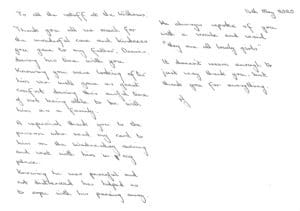 To all the staff at the Willows.
Thank you all so much for
the wonderful care and kindness
you gave to my father
during his time with you.
Knowing you were looking after
him so well gave us great
comfort during this awful time
of not being able to be with
him as a family.
A special thank you to the
person who read my card to
him on the Wednesday evening
and sat with him in my
place.
Knowing he was peaceful and
not distressed has helped us
to cope with his passing away
May 2020
He always spoke of you
with a smile and said
"they are all lovely girls".
It doesn't seem enough to
just say thank you, but
thank you for everything